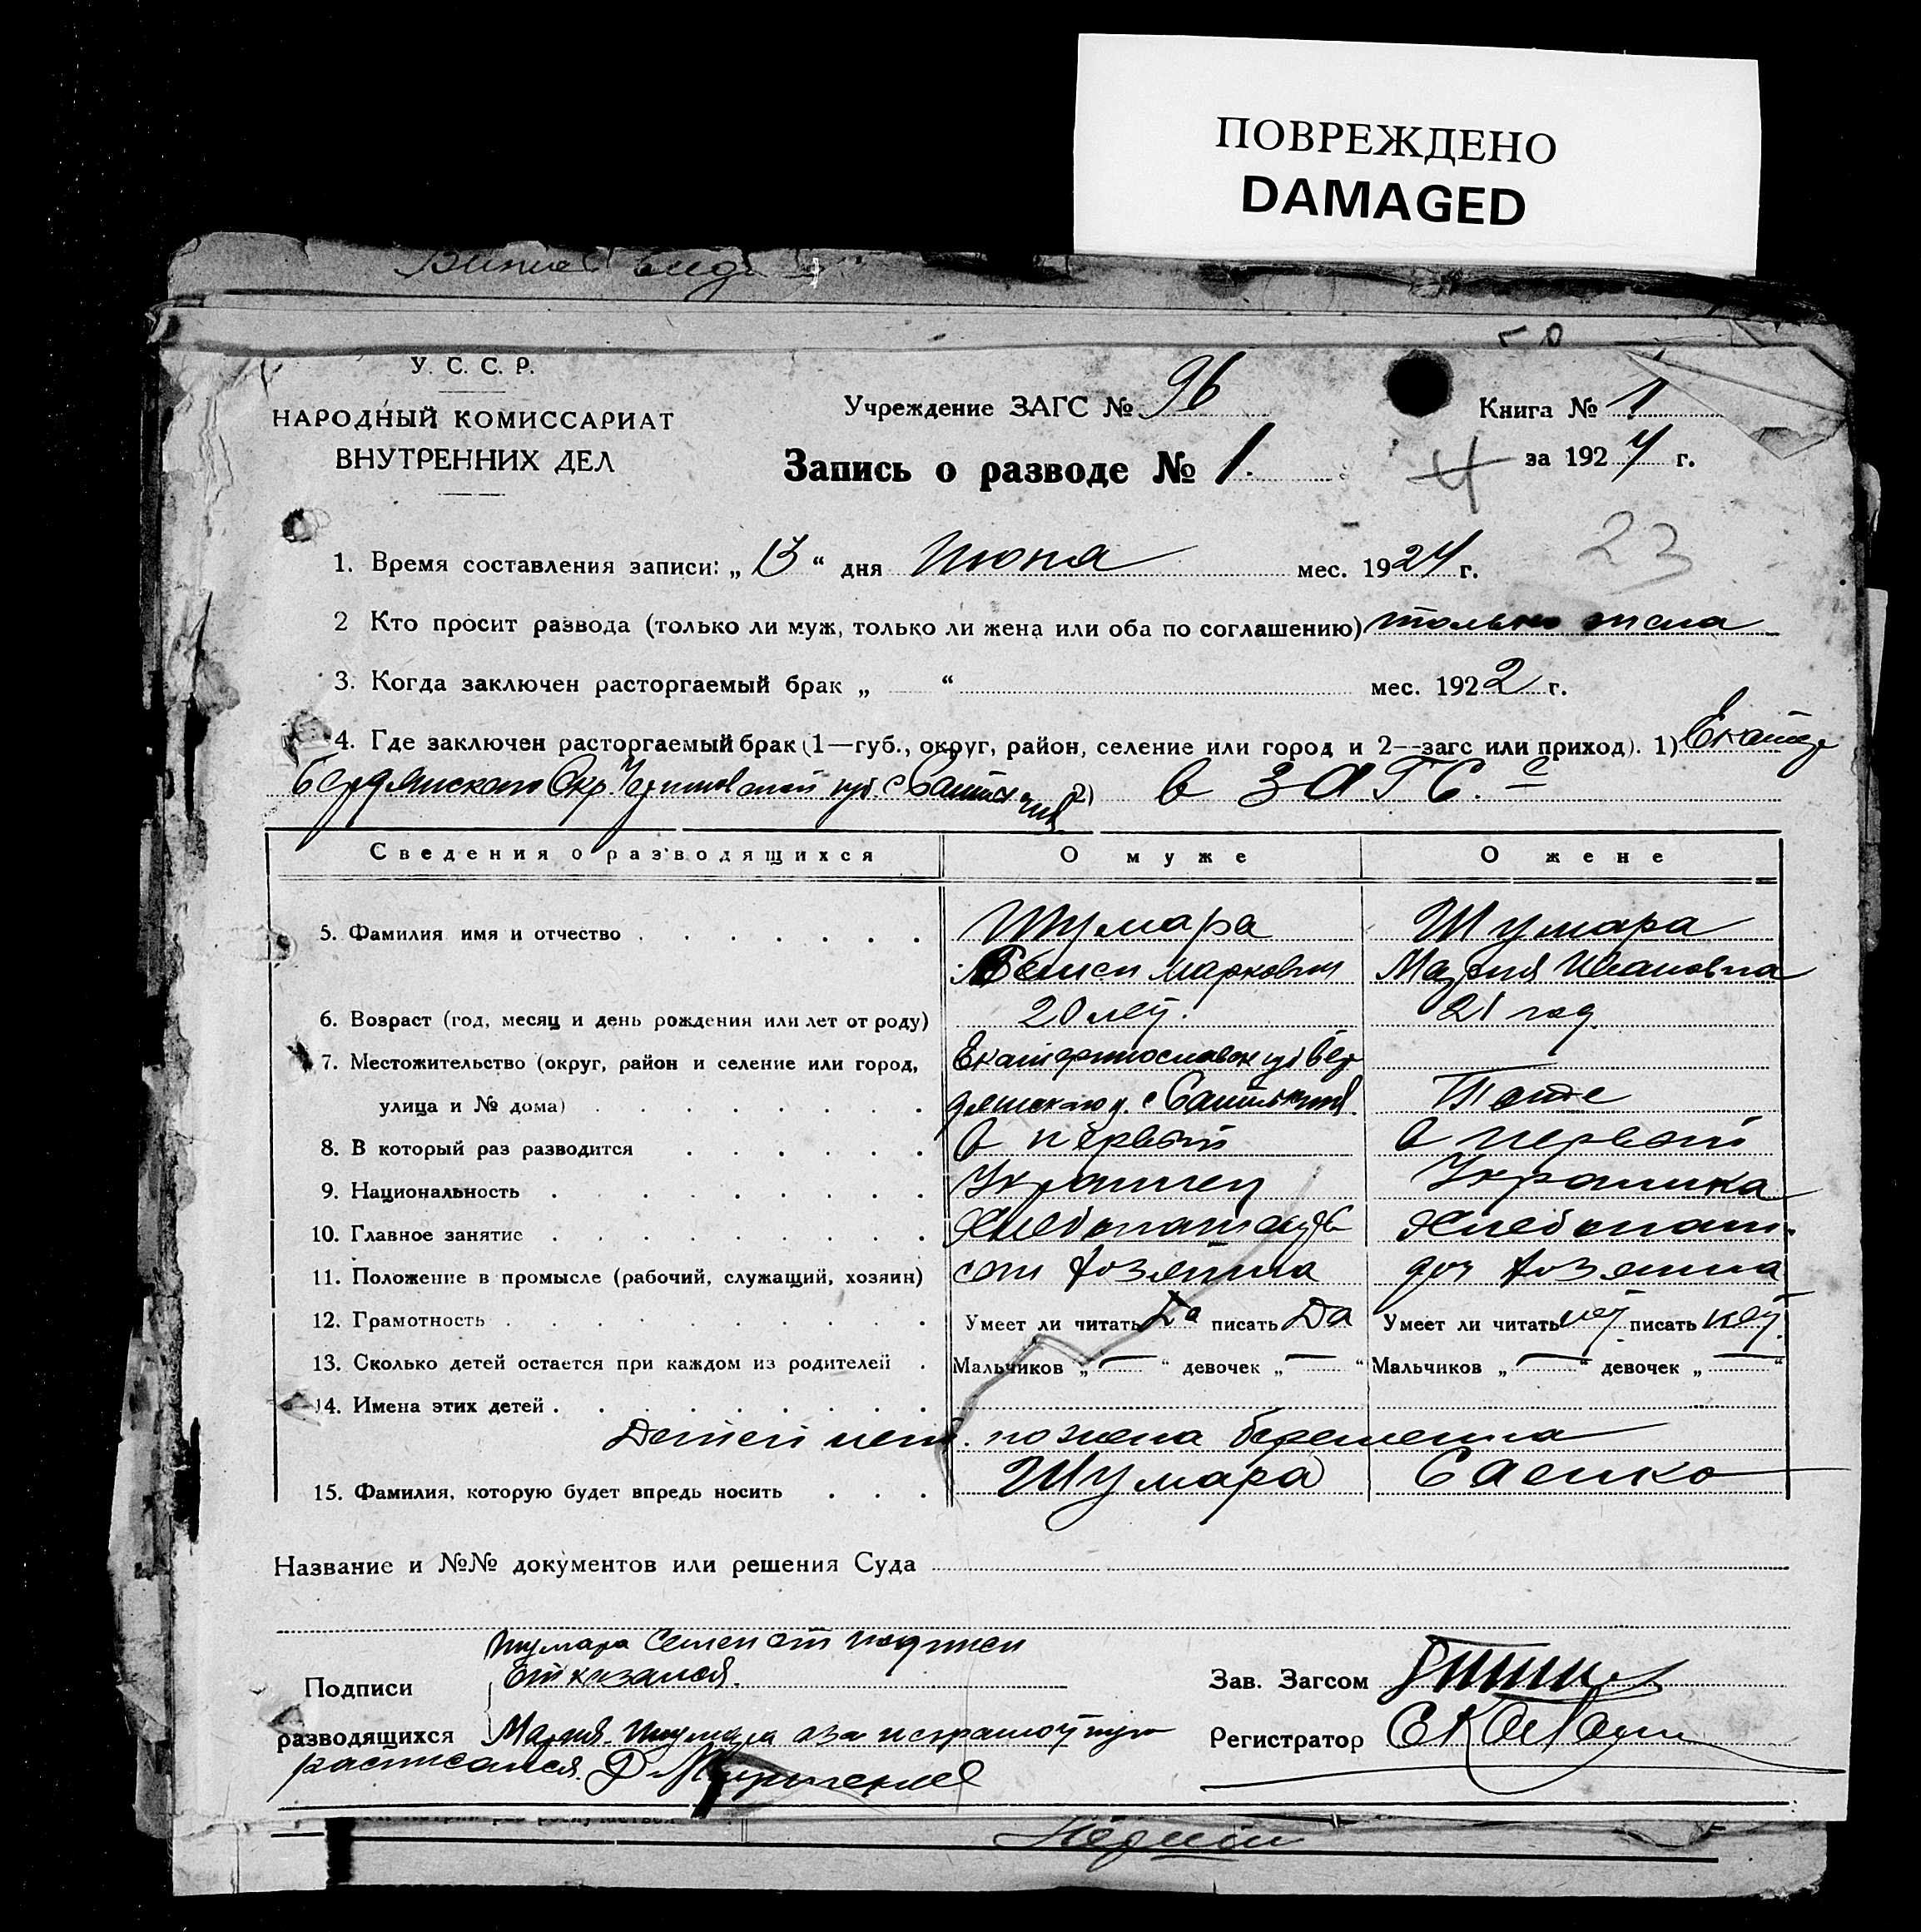 ПОВРЕЖДЕНО
DAMAGED
У. С. С. Р.
НАРОДНЫЙ КОМИССАРИАТ
ВНУТРЕННИХ ДЕЛ
Учреждение ЗАГС № 96
Книга № 1
Запись о разводе № 1.
за 1924 г.
23
1. Время составления записи: „ 13 “ дня Июня мес. 1924 г.
2 Кто просит развода (только ли муж, только ли жена или оба по соглашению) только жена
3. Когда заключен расторгаемый брак „ “ мес. 1922 г.
4. Где заключен расторгаемый брак (1—губ., округ, район, селение или город и 2—загс или приход). 1) Екатер
Бердянского Окр. 2) в ЗАГС.е
Сведения о разводящихся О муже О жене
5. Фамилия имя и отчество Шумара Шумара
Семен Маркович Мария Ивановна
6. Возраст (год, месяц и день рождения или лет от роду) 20 лет. 21 год.
7. Местожительство (округ, район и селение или город, Екатеринославск губ Бер
улица и № дома) дянского у. с Тоже
8. В который раз разводится в первый в первый
9. Национальность Украинец Украинка
10. Главное занятие Хлебопашец Хлебопаш.
11. Положение в промысле (рабочий, служащий, хозяин) сын хозяина доч хозяина
12. Грамотность Умеет ли читать Да писать Да Умеет ли читать нет писать нет
13. Сколько детей остается при каждом из родителей Мальчиков „ — “ девочек „ — “ Мальчиков „ — “ девочек „ — “
14. Имена этих детей
Детей нет. но жена беременна
15. Фамилия, которую будет впредь носить Шумара Саенко
Название и №№ документов или решения Суда
Шумара Семен от подписи
Подписи отказался. Зав. Загсом
разводящихся Мария Шумара а за неграмотную Регистратор
расписался.